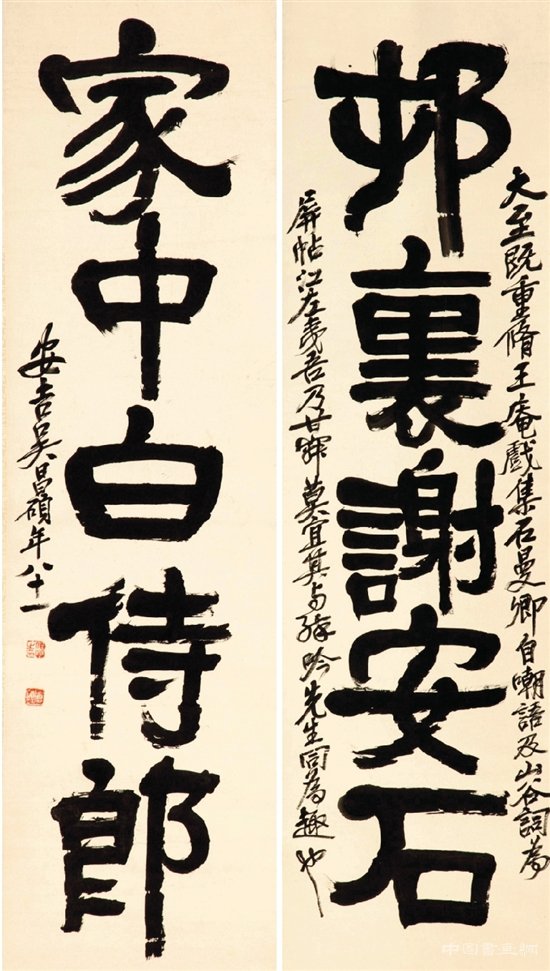 大至既重脩王庵戲集石曼卿自嘲語及山谷詞為
邨裏謝安石
屏帖江左夷吾乃甘莫宜其与吟先生同為趣也
家中白侍郎
安吉吳昌碩年八十一
中国書画網